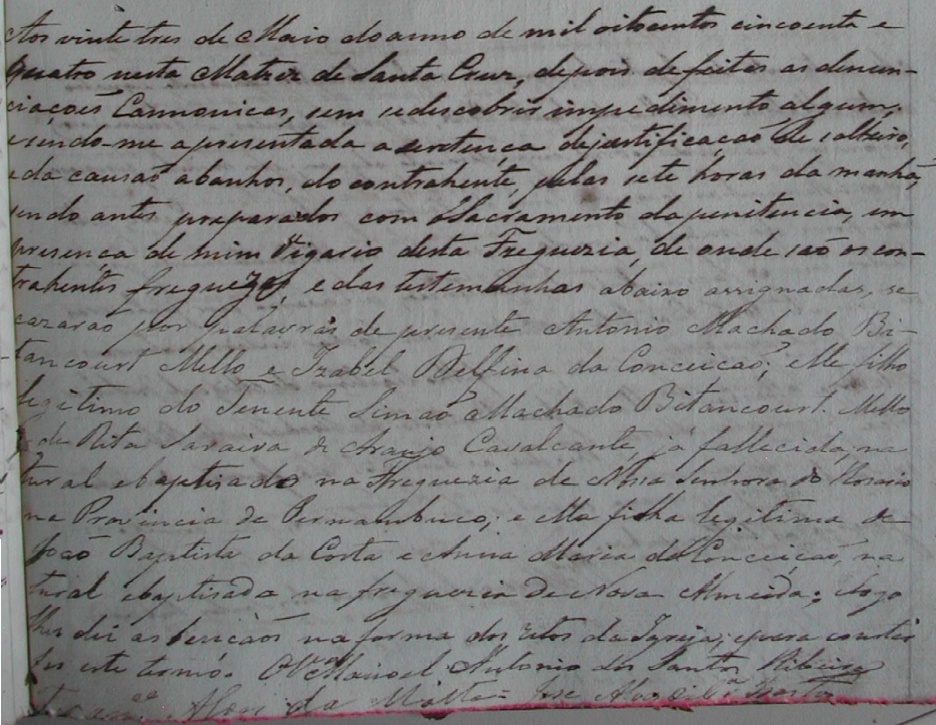 Aos vinte tres de Maio do anno de mil oitocentos cincoenta e
quatro nesta Matrez de Santa Cruz, depois de feitas as denun-
ciaçoes Cannonicas, sem se descobrir impedimento algum,
e sendo-me apresentada a sentença de justificaçaõ de solteiro,
e da causaõ a banhos, do contrahente, pelas sete horas da manhã,
sendo antes preparados com o Sacramento da penitencia, em
presença de mim Vigario desta Freguezia, de onde saõ os con-
trahentes freguezes, e das testemunhas abaixo assignadas, se
cazaraõ por palavras de presente Antonio Machado Bi-
tancourt Mello e Izabel Delfina da Conceicaõ; elle filho
legitimo do Tenente Simaõ Machado Bitancourt Mello
e de Rita Saraiva de Araujo Cavalcante, já fallecida, na
tural e baptisado na Freguezia de Nossa Senhora do Rosario
na Provincia de Pernambuco; e ella filha legitima de
Joaõ Baptista da Costa e Anna Maria da Conceiçaõ, na
tural e baptisada na freguezia de Nova Almeida; e logo
lhes dei as bençaõs na forma dos ritos da Igreja; e para constar
fiz este termo. O Vigº Manoel Antonio dos Santos Ribeiro
da Malta José